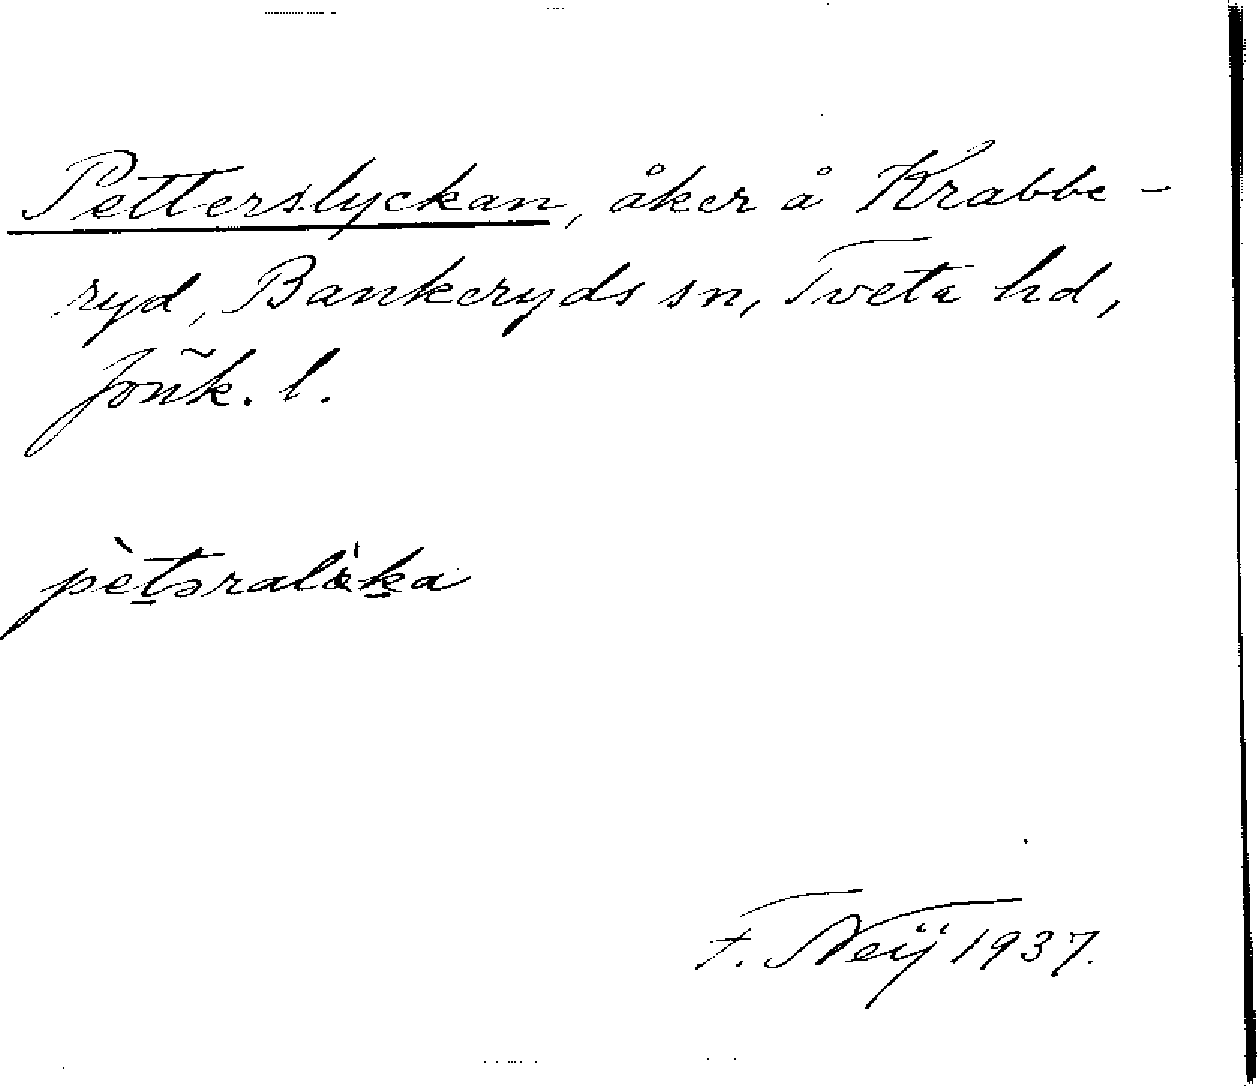 Petterslyckan, åker å Krabbe-
ryd, Bankeryds sn, Tveta hd,
Jönk. l.
F. Neij 1937.